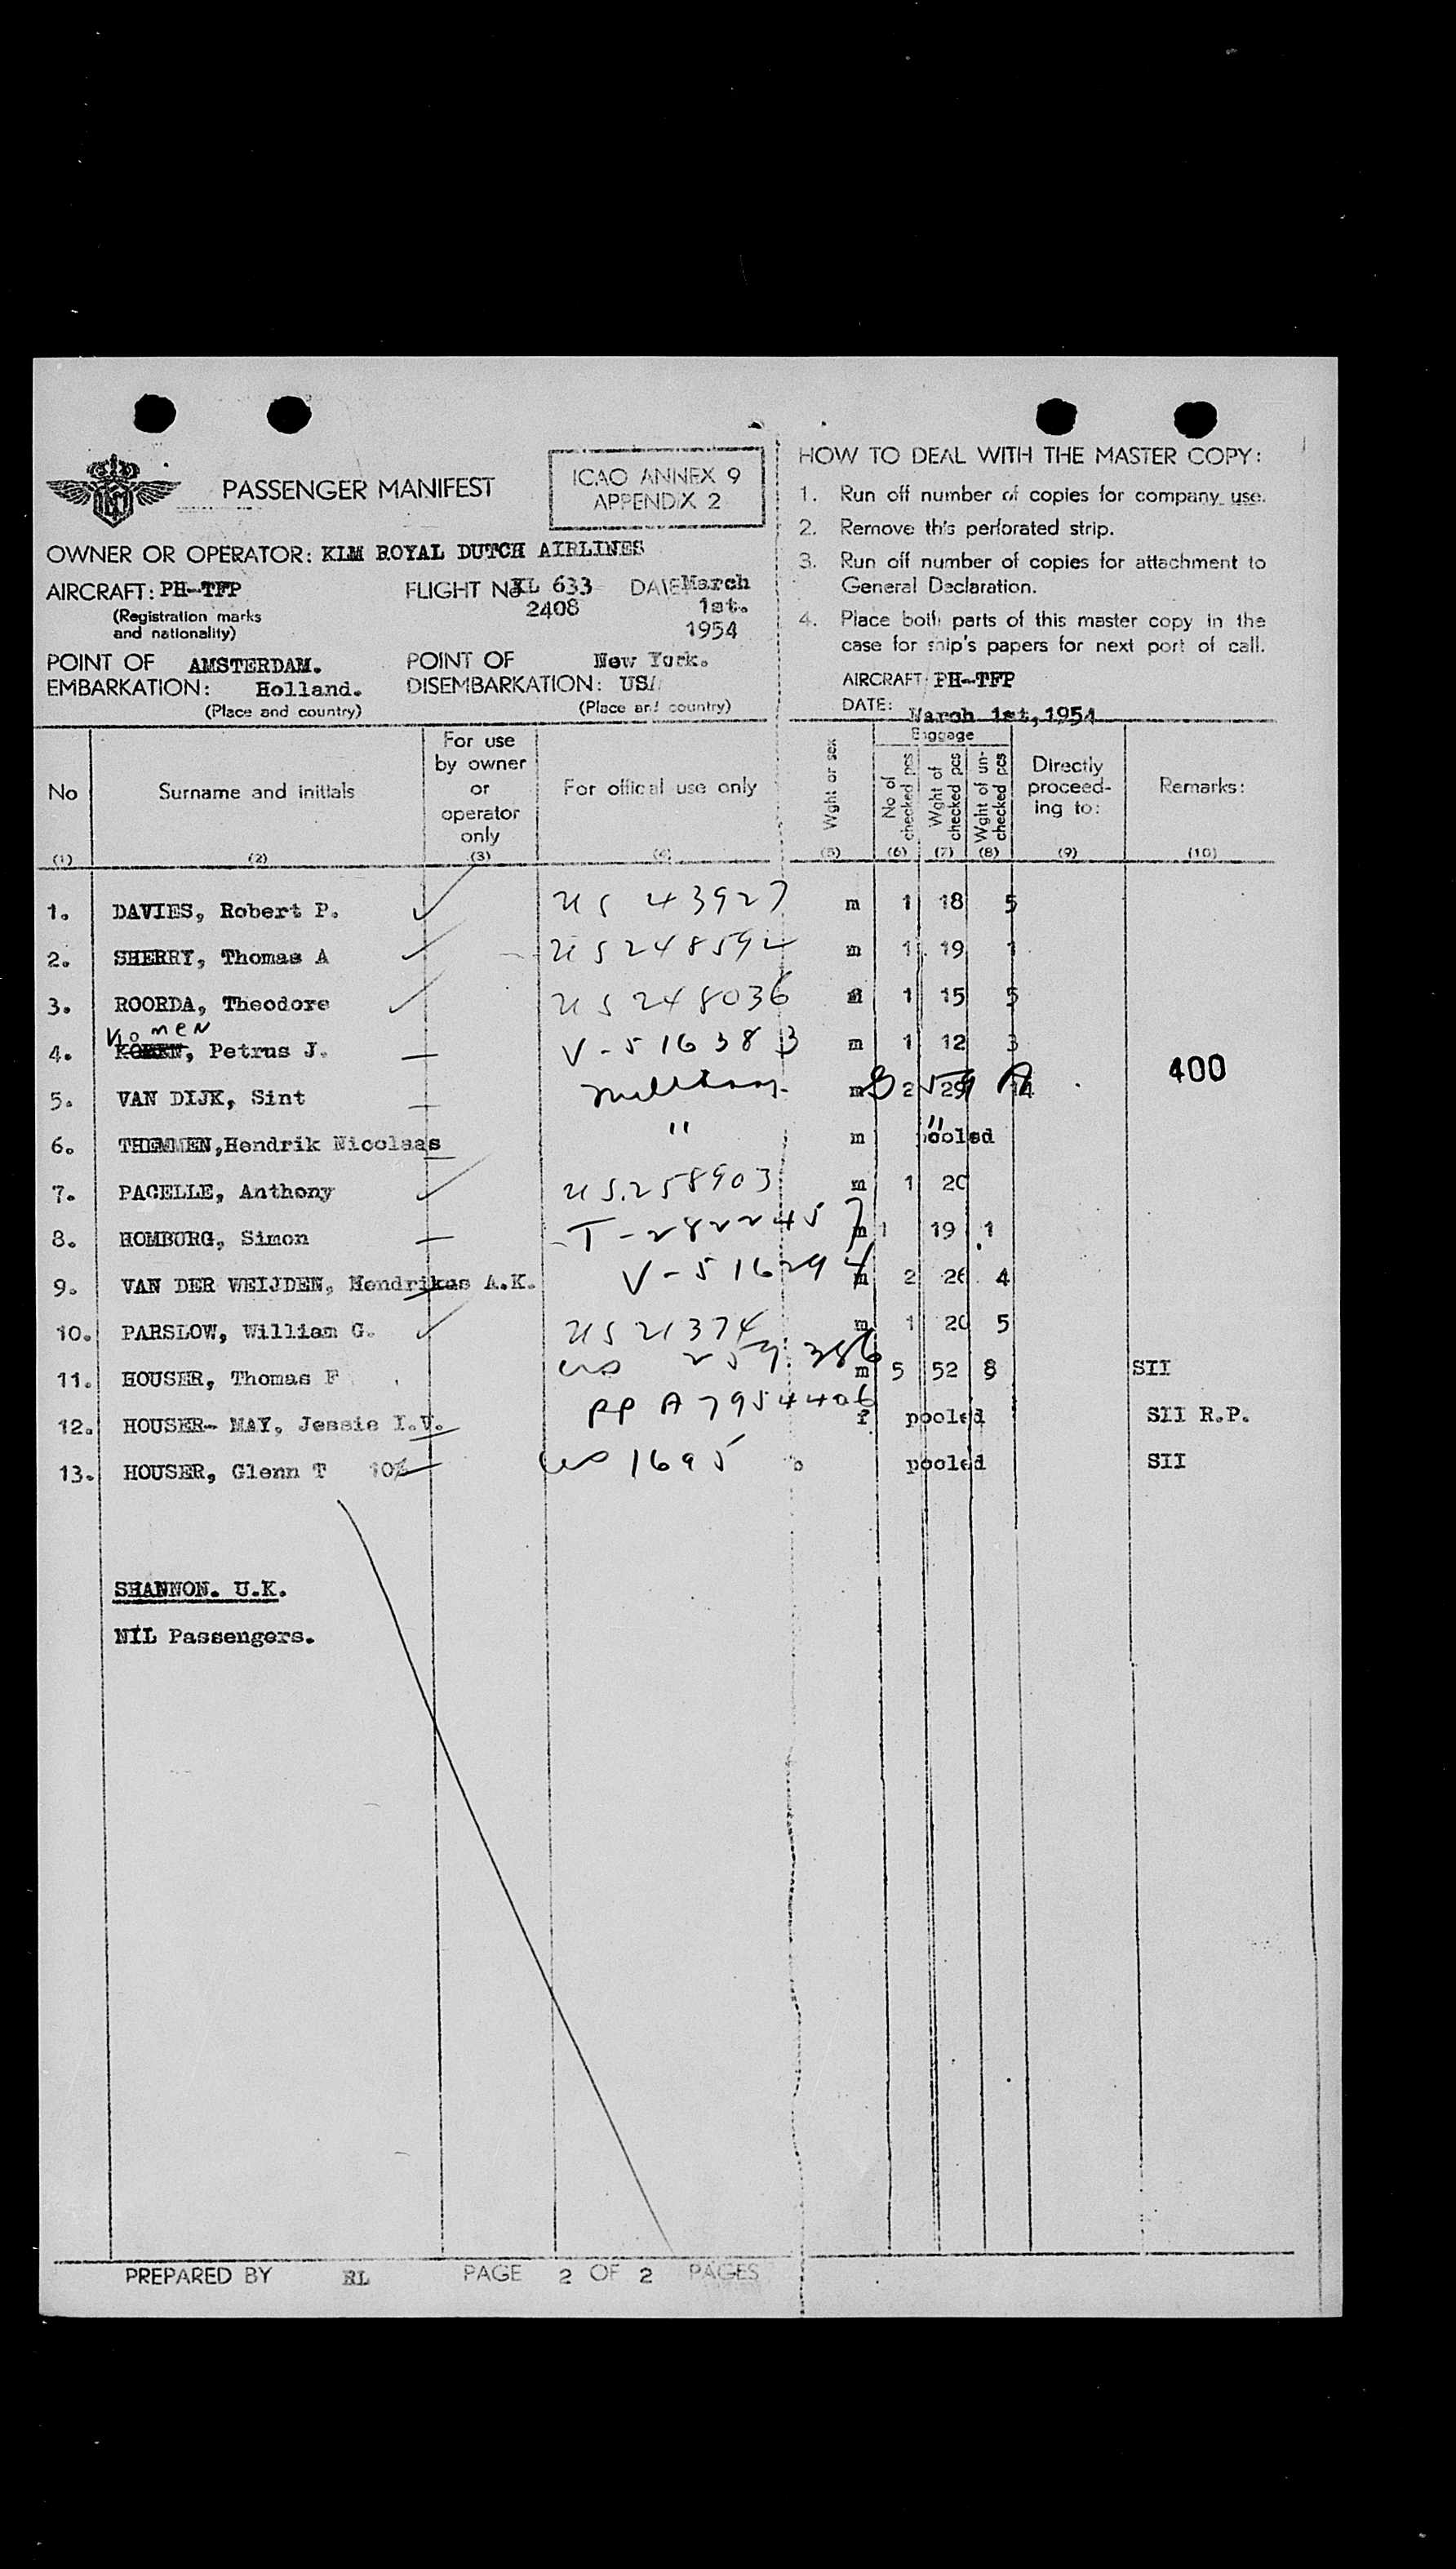 PASSENGER MANIFEST
ICAO ANNEX 9
APPENDIX 2
OWNER OR OPERATOR: KLM ROYAL DUTCH AIRLINES
AIRCRAFT: PH-TFP
(Registration marks
and nationality)
FLIGHT No KL 633
2408
DATE March
1st.
1954
POINT OF EMBARKATION: AMSTERDAM.
Holland.
(Place and country)
POINT OF DISEMBARKATION: New York.
USA
(Place and country)
HOW TO DEAL WITH THE MASTER COPY:
1. Run off number of copies for company use.
2. Remove this perforated strip.
3. Run off number of copies for attachment to
General Declaration.
4. Place both parts of this master copy in the
case for ship's papers for next port of call.
AIRCRAFT: PH-TFP
DATE: March 1st, 1954
No (1)
Surname and initials (2)
For use
by owner
or
operator
only
(3)
For offical use only (4)
Wght or sex (5)
Baggage
No of checked pcs (6)
Wght of checked pcs (7)
Wght of un-checked pcs (8)
Directly
proceed-
ing to:
(9)
Remarks: (10)
1. DAVIES, Robert P. US 43927 m 1 18 5
2. SHERRY, Thomas A US 248592 m 1 19 1
3. ROORDA, Theodore US 248036 m 1 15 5
Vromen
4. Petrus J. V-516383 m 1 12 3
400
5. VAN DIJK, Sint m 2 29
6. THEMMEN, Hendrik Nicolaas " m pooled
7. PACELLE, Anthony US. 258903 m 1 20
8. HOMBURG, Simon T-2822457 m 1 19 1
9. VAN DER WEIJDEN, Hendrikus A.K. V-516294 m 2 26 4
10. PARSLOW, William G. US 21374 m 1 20 5
11. HOUSER, Thomas F us 259.386 m 5 52 8 SII
12. HOUSER- MAY, Jessie I.V. PP A 7954406 f pooled SII R.P.
13. HOUSER, Glenn T 10% us 1695 pooled SII
SHANNON. U.K.
NIL Passengers.
PREPARED BY RL PAGE 2 OF 2 PAGES